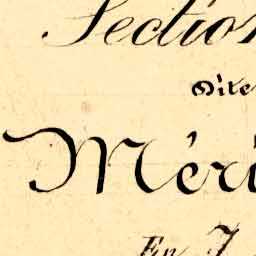 Section
dite
Méri
En J